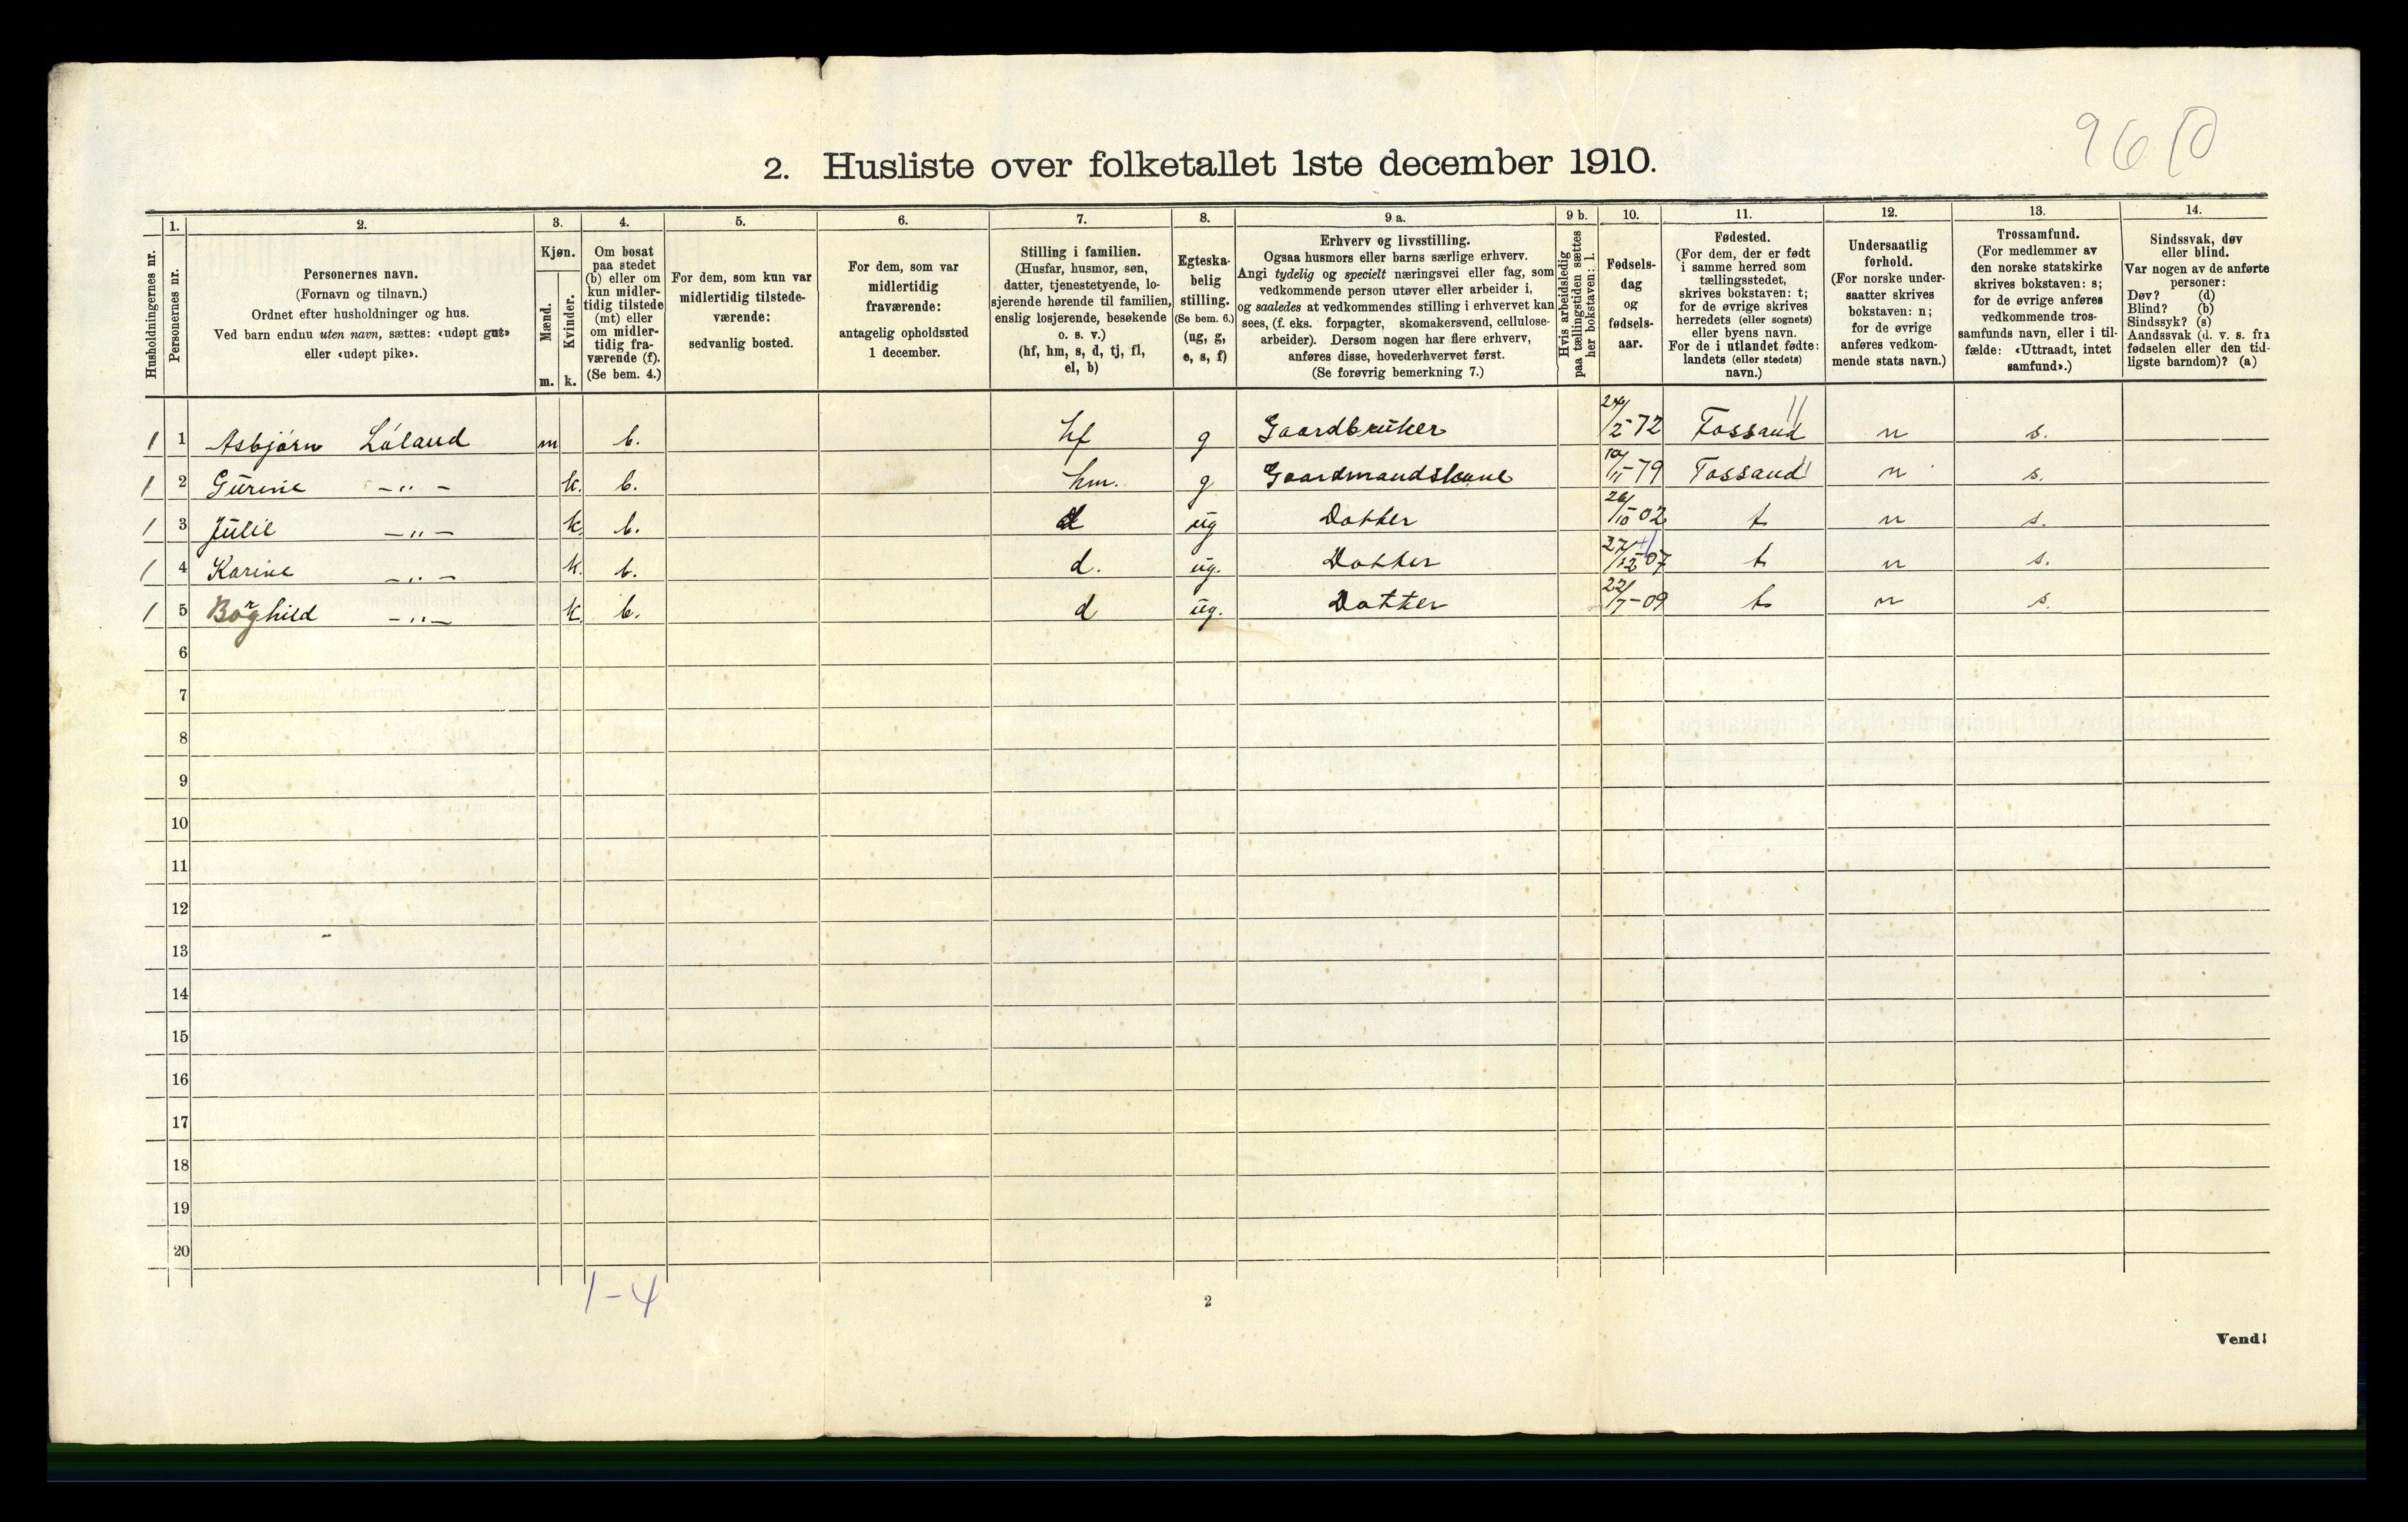 9610
2. Husliste over folketallet 1ste december 1910.
Husholdningernes nr.
1.
Personernes nr.
2.
Personernes navn.
(Fornavn og tilnavn.)
Ordnet efter husholdninger og hus.
Ved barn endnu uten navn, sættes: «udøpt gut»
eller «udøpt pike».
3.
Kjøn.
Mænd.
m.
Kvinder.
k.
4.
Om bosat
paa stedet
(b) eller om
kun midler-
tidig tilstede
(mt) eller
om midler-
tidig fra-
værende (f).
(Se bem. 4.)
5.
For dem, som kun var
midlertidig tilstede-
værende:
sedvanlig bosted.
6.
For dem, som var
midlertidig
fraværende:
antagelig opholdssted
1 december.
7.
Stilling i familien.
(Husfar, husmor, søn,
datter, tjenestetyende, lo-
sjerende hørende til familien,
enslig losjerende, besøkende
o. s. v.)
(hf, hm, s, d, tj, fl,
el, b)
8.
Egteska-
belig
stilling.
(Se bem. 6.)
(ug, g,
e, s, f)
9 a.
Erhverv og livsstilling.
Ogsaa husmors eller barns særlige erhverv.
Angi tydelig og specielt næringsvei eller fag, som
vedkommende person utøver eller arbeider i,
og saaledes at vedkommendes stilling i erhvervet kan
sees, (f. eks. forpagter, skomakersvend, cellulose-
arbeider). Dersom nogen har flere erhverv,
anføres disse, hovederhvervet først.
(Se forøvrig bemerkning 7.)
9 b.
Hvis arbeidsledig
paa tællingstiden sættes
her bokstaven: l.
10.
Fødsels-
dag
og
fødsels-
aar.
11.
Fødested.
(For dem, der er født
i samme herred som
tællingsstedet,
skrives bokstaven: t;
for de øvrige skrives
herredets (eller sognets)
eller byens navn.
For de i utlandet fødte:
landets (eller stedets)
navn.)
12.
Undersaatlig
forhold.
(For norske under-
saatter skrives
bokstaven: n;
for de øvrige
anføres vedkom-
mende stats navn.)
13.
Trossamfund.
(For medlemmer av
den norske statskirke
skrives bokstaven: s;
for de øvrige anføres
vedkommende tros-
samfunds navn, eller i til-
fælde: «Uttraadt, intet
samfund».)
14.
Sindssvak, døv
eller blind.
Var nogen av de anførte
personer:
Døv? (d)
Blind? (b)
Sindssyk? (s)
Aandssvak (d. v. s. fra
fødselen eller den tid-
ligste barndom)? (a)
1 1 Asbjørn Løland m b. hf g Gaardbruker 24/2-72 Fossand n s.
1 2 Gurine -"- k. b. hm. g Gaardmandskone 10/11-79 Fossand n s.
1 3 Julie -"- k. b. d ug Datter 26/10 02 t n s.
1 4 Karine -"- k. b. d. ug. Datter 27/12-07 t n s.
1 5 Borghild -"- k. b. d ug. Datter 22/7-09 t n s.
6
7
8
9
10
11
12
13
14
15
16
17
18
19
20
1-4
2
Vend!